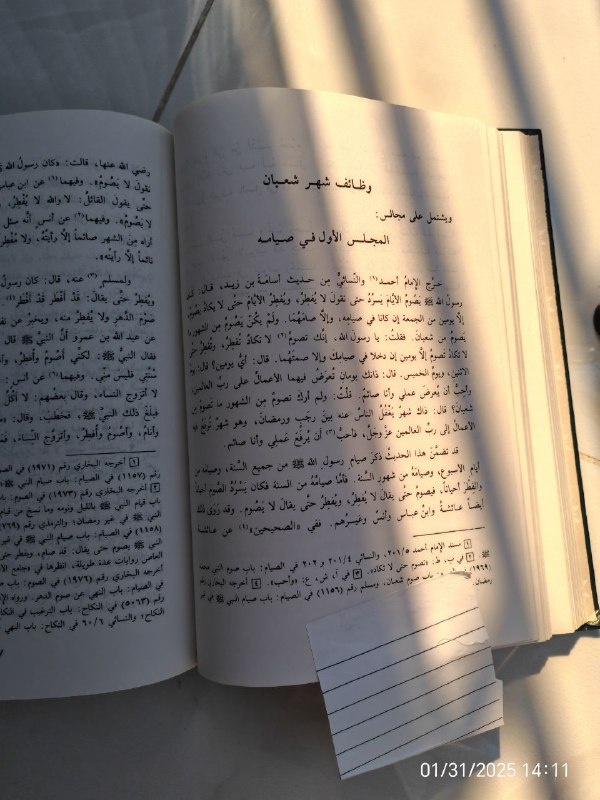 وظائف شهر شعبان
ويشتمل على مجالس:
المجلس الأول في صيامه
خرَّج الإمامُ أحمد(١) والنسائيُّ مِن حديث أسامةَ بن زيد، قال: كان
رسولُ الله ﷺ يَصُومُ الأيَّامَ يَسرُدُ حتى نقولَ لا يُفطِرُ، ويُفطِرُ الأيّامَ حتى لا يكادُ يَصُومُ
إلَّا يومين من الجمعة إن كانا في صيامِه، وإلَّا صامَهُمَا. ولم يَكُنْ يَصُومُ مِن الشهورِ ما
يَصُومُ من شعبانَ. فقلتُ: يا رسولَ الله، إنَّك تصومُ(٢) لا تكادُ تُفطِرُ، وتُفطِرُ حتى
لا تكادُ تصومُ إلَّا يومينِ إن دخلا في صيامِكَ وإلا صمتَهُما. قال: أيُّ يومين؟ قال: يوم
الاثنين، ويوم الخميس. قال: ذانك يومانِ تُعرَضُ فيهما الأعمالُ على ربِّ العالمين،
وأحِبُّ أن يُعرضَ عملي وأنا صائم. قلتُ: ولم أرك تصومُ مِن الشهور ما تصومُ مِن
شعبان؟ قال: ذاك شهرٌ يَغْفُلُ الناسُ عنه بينَ رجَبٍ ورمضان، وهو شهرٌ تُرفَعُ فيه
الأعمالُ إلى ربِّ العالمين عزَّ وجلَّ، فأُحبُّ(٣) أن يُرفَعَ عملي وأنا صائم.
قد تضمَّنَ هذا الحديثُ ذكرَ صيامِ رسولِ اللهِ ﷺ من جميعِ السَّنة، وصيامَه مِن
أيامِ الأسبوع، وصيامَه من شهورِ السنة. فأمَّا صيامُه من السنة فكان يَسرُدُ الصَّومَ أحياناً
والفِطْرَ أحياناً، فيصومُ حتى يقالَ لا يُفطِرُ، ويُفطِرُ حتى يقالَ لا يَصُومُ. وقد رَوَى ذلك
أيضاً عائشةُ وابنُ عباس وأنسٌ وغيرُهم. ففي «الصحيحين»(٤) عن عائشةَ
١ مسند الإمام أحمد ٢٠١/٥، والنسائي ٢٠١/٤ و ٢٠٢ في الصيام: باب صوم النبي ﷺ.
٢ في ب، ط: «تصوم حتى لا تكاد». ٣ في آ، ش، ع: «وأحب». ٤ أخرجه البخاري رقم
(١٩٦٩) باب صوم شعبان، ومسلم رقم (١١٥٦) في الصيام: باب صيام النبي ﷺ في غير
رمضان
رضي الله عنها، قالت: «كان رسولُ الله
نقولَ لا يَصُومُ». وفيهما(١) عن ابن عباس
حتَّى يقولَ القائلُ: لا والله لا يُفْطِرُ،
لا يَصُومُ». وفيهما(٢) عن أنس أنَّه سئل
أراه مِن الشهر صائماً إلَّا رأيتُه، ولا مُفْطِراً
نائماً إلَّا رأيته.
ولمسلم(٣) عنه، قال: كان رسولُ
ويُفطِرُ حتَّى يقالَ: قَدْ أفطَر قَدْ أفْطَر(٤)
صَوْمَ الدَّهرِ ولا يفطرُ منه، ويخبِرُ عن نفسه
عن عبد الله بن عمرو أنَّ النبيَّ ﷺ قال
فقال النبيُّ ﷺ: لكنِّي أصُومُ وأُفطِرُ، وأ
سُنَّتِي فليسَ مِنِّي. وفيهما(٦) عن أنس:
لا أتزوج النساء، وقال بعضُهم: لا آكُلُ
فبَلَغَ ذلك النبيَّ ﷺ، فخَطَبَ، وقال:
وأنامُ، وأصُومُ وأُفطِرُ، وأتزوَّج النساءَ،
١ أخرجه البخاري رقم (١٩٧١) في الصوم:
رقم (١١٥٧) في الصيام: باب صيام النبي ﷺ
٢ أخرجه البخاري رقم (١٩٧٣) في الصوم: باب
باب قيام النبي ﷺ بالليل ونومه وما نسخ من قيام
النبي ﷺ في غير رمضان؛ والترمذي رقم (٧٦٩)
(١١٥٨) في الصيام: باب صيام النبي ﷺ في غير
النبي ﷺ يصوم حتى يقال: قد صام، ويفطر حتى
أخرجه البخاري رقم (١٩٧٦) في الصوم: باب
في الصيام: باب النهي عن صوم الدهر. ورواه
رقم (٥٠٦٣) في النكاح: باب الترغيب في النكاح
النكاح؛ والنسائي ٦٠/٦ في النكاح: باب النهي
01/31/2025 14:11